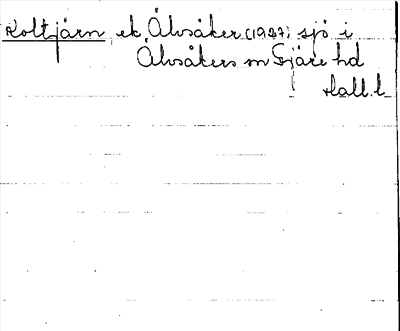 Koltjärn ek. Älvsåker (1927) sjö i
Älvsåkers sn Fjäre hd
Hall. l